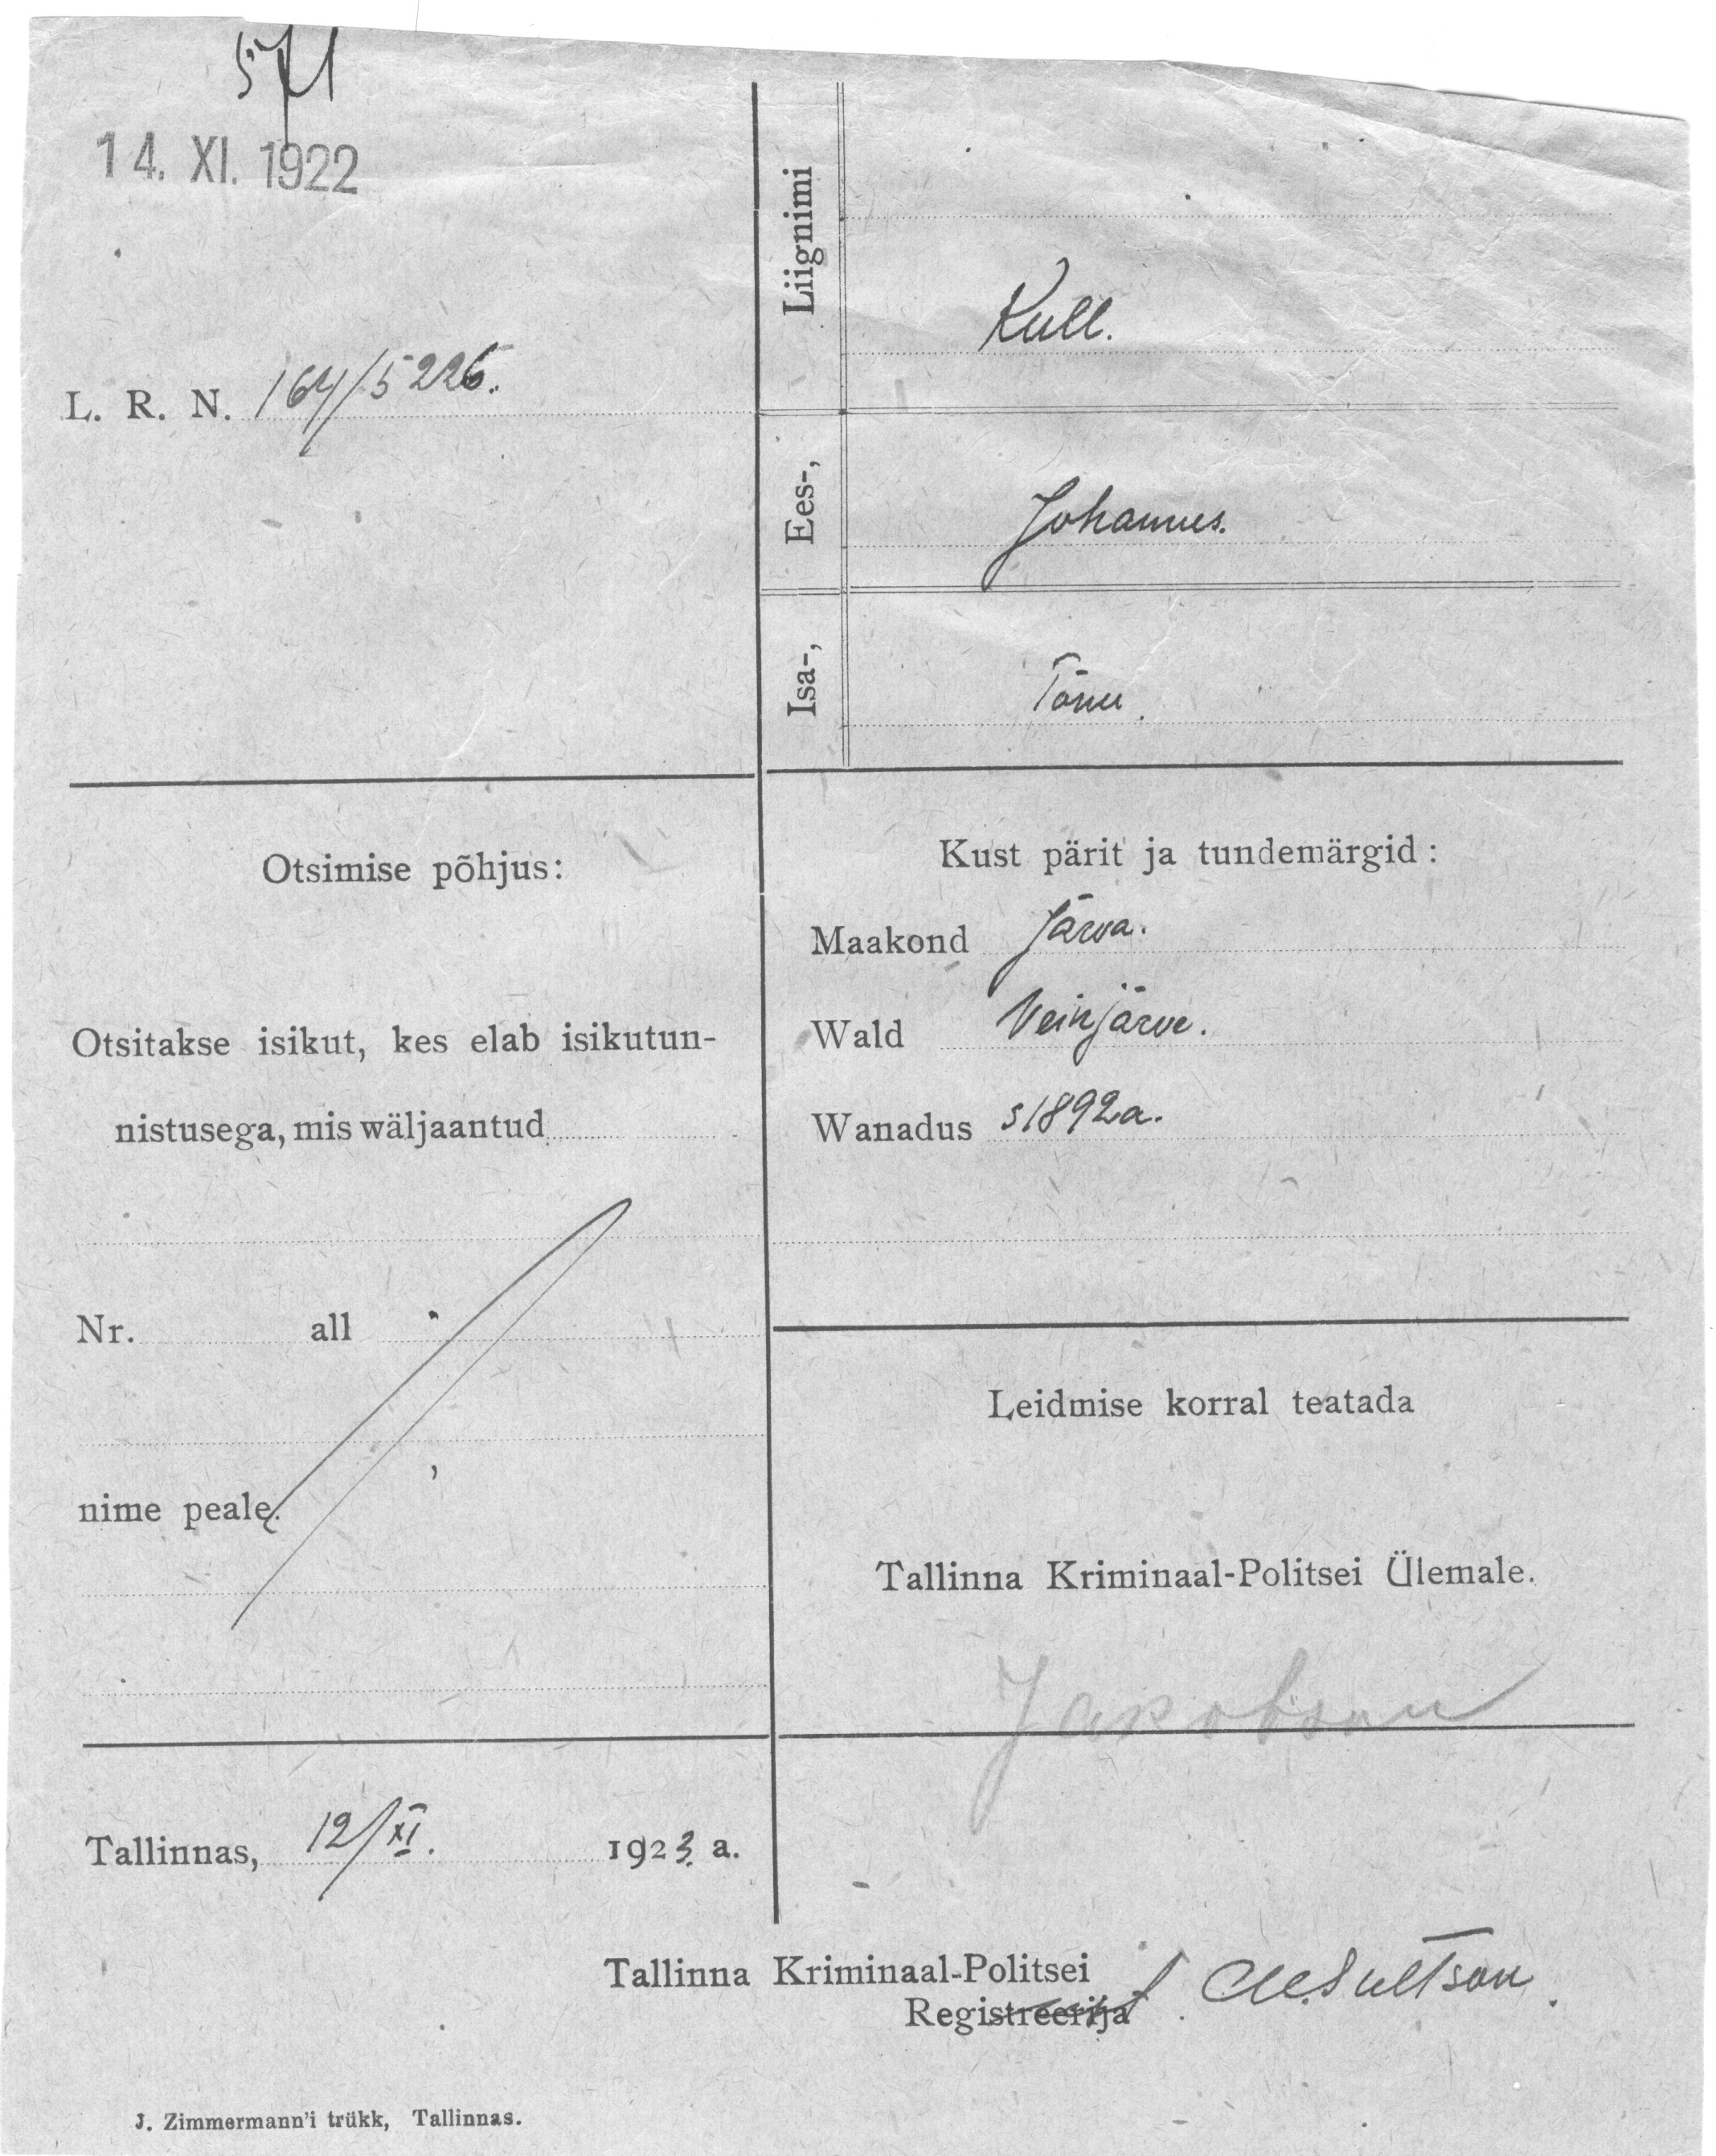 571
14. XI. 1922
L. R. N. 164/5226.
Liignimi
Kull.
Ees-,
Johannes.
Isa-,
Tõnu.
Otsimise põhjus:
Otsitakse isikut, kes elab isikutun-
nistusega, mis wäljaantud
Nr. all
nime peale.
Kust pärit ja tundemärgid:
Maakond Järva.
Wald Veinjärve.
Wanadus s 1892 a.
Leidmise korral teatada
Tallinna Kriminaal-Politsei Ülemale.
Jakobson
Tallinnas, 12/XI. 1923. a.
Tallinna Kriminaal-Politsei
Registreerija
J. Zimmermann'i trükk, Tallinnas.